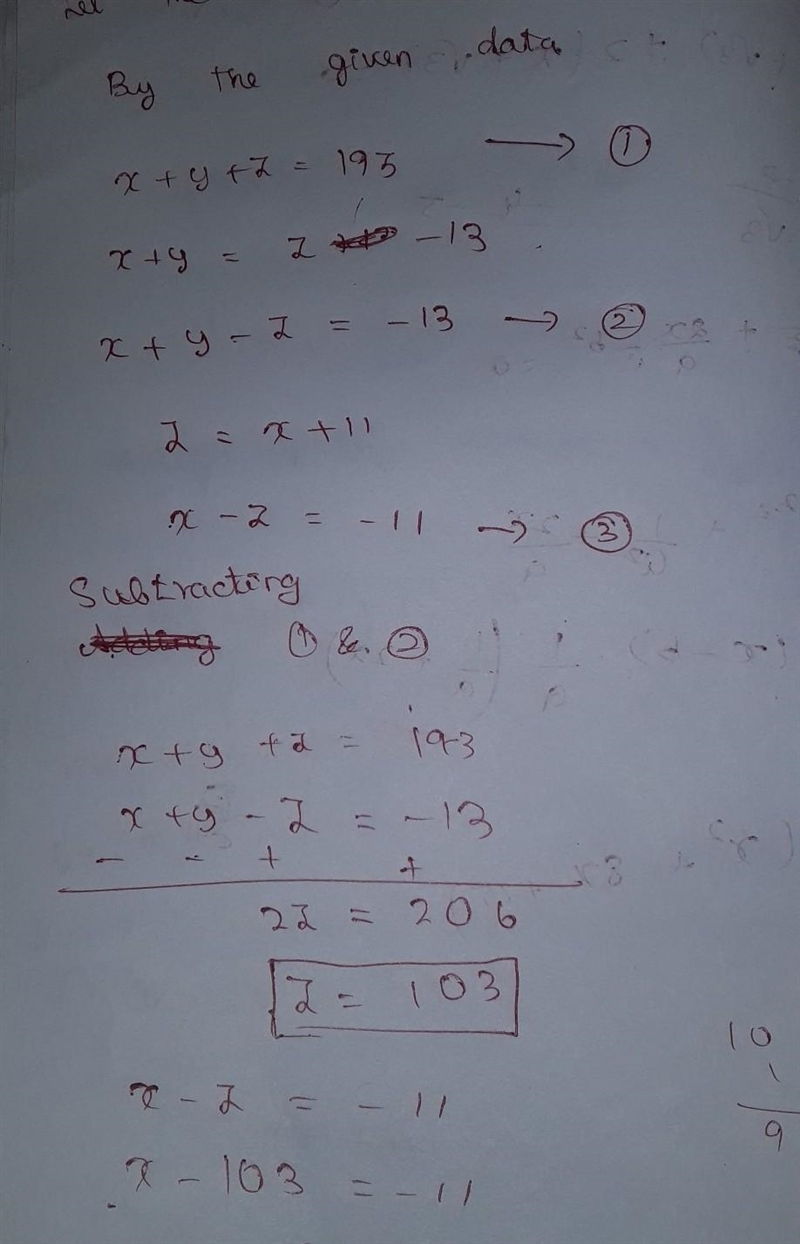 By the given data
x + y + z = 193 → ①
x + y = z - 13
x + y - z = -13 → ②
z = x + 11
x - z = -11 → ③
Subtracting
① & ②
x + y + z = 193
x + y - z = -13
- - + +
2z = 206
z = 103
10
1
9
x - z = -11
x - 103 = -11